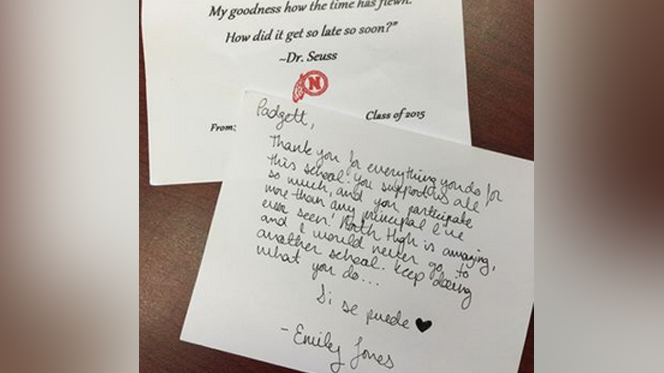 My goodness how the time has flewn.
How did it get so late so soon?"
~Dr. Seuss
N
Class of 2015
From:
Padgett,
Thank you for everything you do for
this school. You support us all
so much, and you participate
more than any principal I've
ever seen! North High is amazing,
and I would never go to
another school. Keep doing
what you do...
Si se puede
- Emily Jones